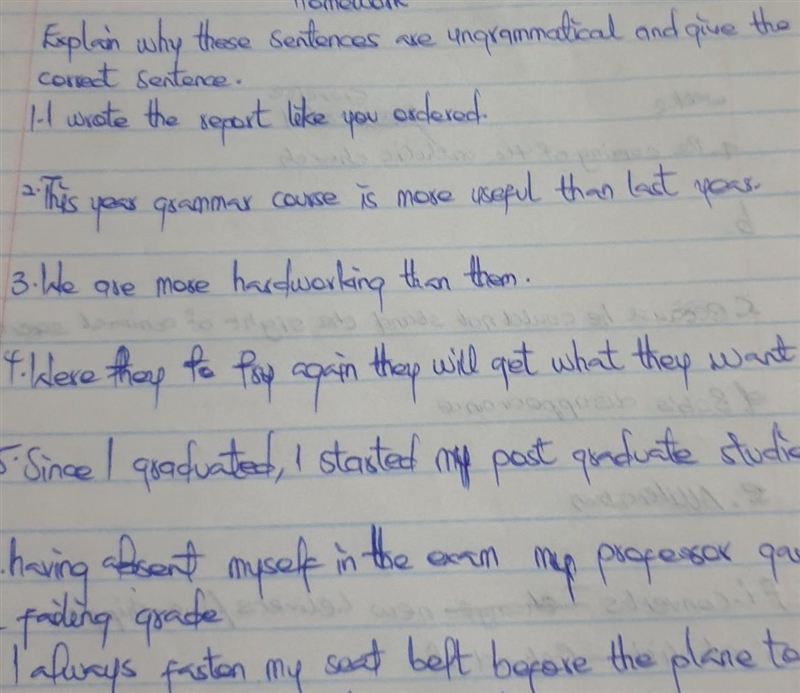 Homework
Explain why these sentences are ungrammatical and give the
correct sentence.
1-I wrote the report like you ordered.
2-This year grammar course is more useful than last year.
3-We are more hardworking than them.
4-Were they to try again they will get what they want
5-Since I graduated, I started my post graduate studie
having absent myself in the exam my professor gav
failing grade
I always fasten my seat belt before the plane to